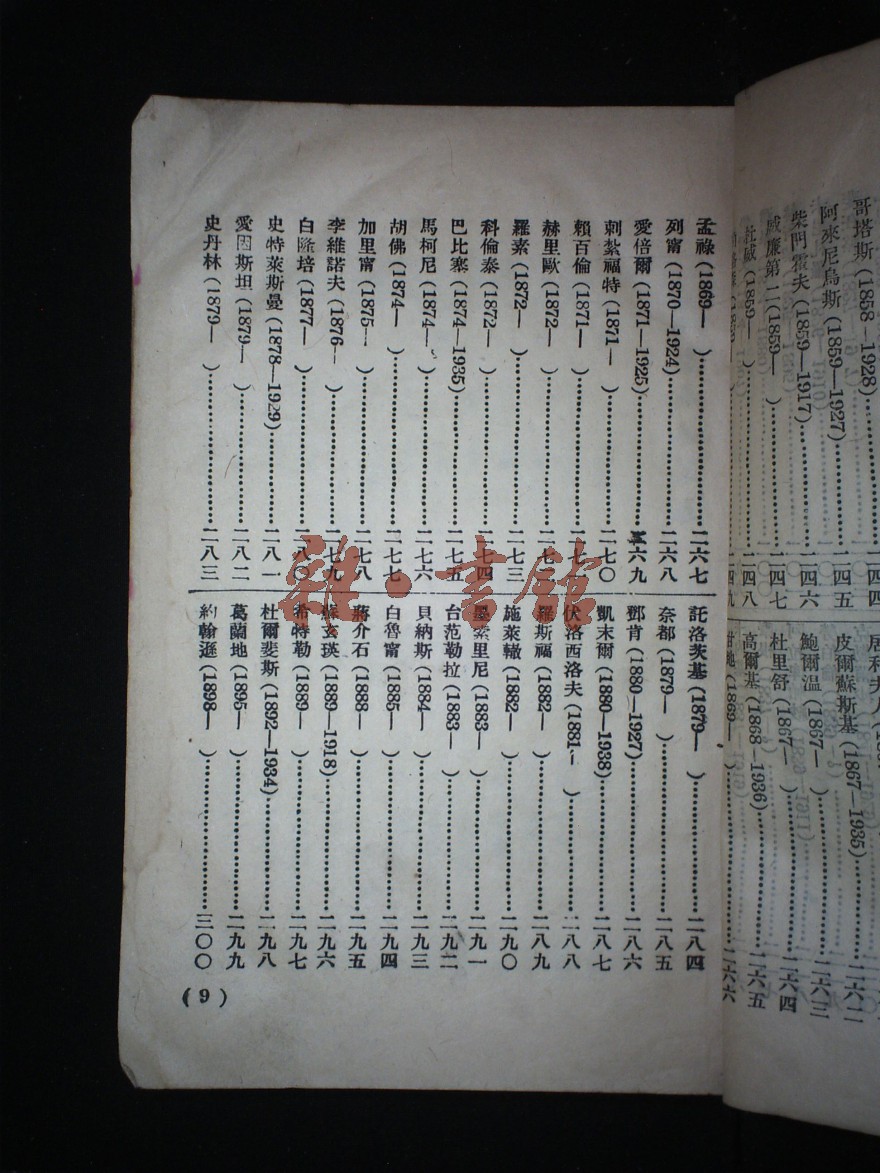 哥塔斯(1858—1928)……二四四
阿來尼烏斯(1859—1927)……二四五
柴門霍夫(1859—1917)……二四六
威廉第二(1859—　)……二四七
杜威(1859—　)……二四八
(1859……二四九
居利夫人
皮爾蘇斯基(1867—1935)……二六二
鮑爾溫(1867—　)……二六三
杜里舒(1867—　)……二六四
高爾基(1868—1936)……二六五
甘地(1869—　)……二六六
孟祿(1869—　)……二六七
列甯(1870—1924)……二六八
愛倍爾(1871—1925)……二六九
刺紮福特(1871—　)……二七〇
賴百倫(1871—　)……二七一
赫里歐(1872—　)……二七二
羅素(1872—　)……二七三
科倫泰(1872—　)……二七四
巴比塞(1874—1935)……二七五
馬柯尼(1874—　)……二七六
胡佛(1874—　)……二七七
加里甯(1875—　)……二七八
李維諾夫(1876—　)……二七九
白隆培(1877—　)……二八〇
史特萊斯曼(1878—1929)……二八一
愛因斯坦(1879—　)……二八二
史丹林(1879—　)……二八三
託洛茨基(1879—　)……二八四
奈都(1879—　)……二八五
鄧肯(1880—1927)……二八六
凱末爾(1880—1938)……二八七
伏洛西洛夫(1881—　)……二八八
羅斯福(1882—　)……二八九
施萊轍(1882—　)……二九〇
墨索里尼(1883—　)……二九一
台范勒拉(1883—　)……二九二
貝納斯(1884—　)……二九三
白魯甯(1885—　)……二九四
蔣介石(1888—　)……二九五
蘇玄瑛(1889—1918)……二九六
希特勒(1889—　)……二九七
杜爾斐斯(1892—1934)……二九八
葛蘭地(1895—　)……二九九
約翰遜(1898—　)……三〇〇
(9)
雜·書館